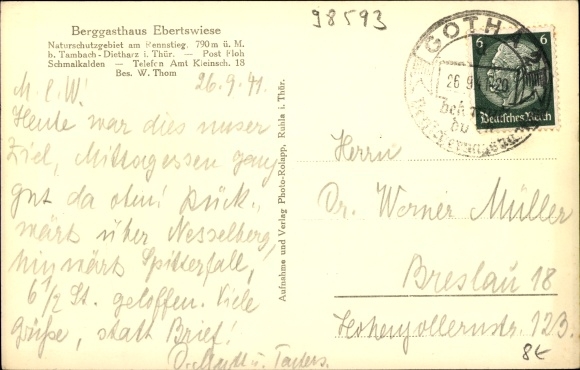 98593
Berggasthaus Ebertswiese
Naturschutzgebiet am Rennstieg. 790 m ü. M.
b. Tambach-Dietharz i. Thür. — Post Floh
Schmalkalden — Telefon Amt Kleinsch. 18
Bes. W. Thom
M. l. W! 26.9.41.
Heute war dies unser
Ziel, Mittagessen ganz
gut da ohne! Rück-
wärt über Nesselberg,
hinwärt Spitterfall,
6 1/2 St. geloffen. Viele
Grüße, statt Brief!
u. Taders.
Aufnahme und Verlag Photo-Rolapp, Ruhla i. Thür.
GOTHA 2
26.9.41-20
6 6
Deutsches Reich
Herrn
Dr. Werner Müller
Breslau 18
Hohenzollernstr. 123.
8€